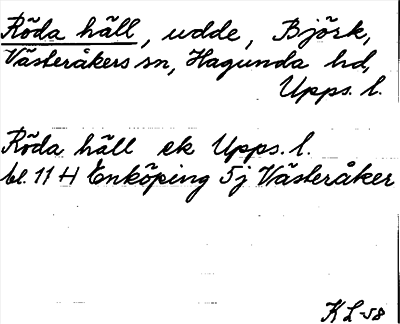 Röda häll, udde, Björk,
Västeråkers sn, Hagunda hd,
Upps. l.
Röda häll ek Upps. l.
bl. 11 H Enköping 5j Västeråker
KL-58